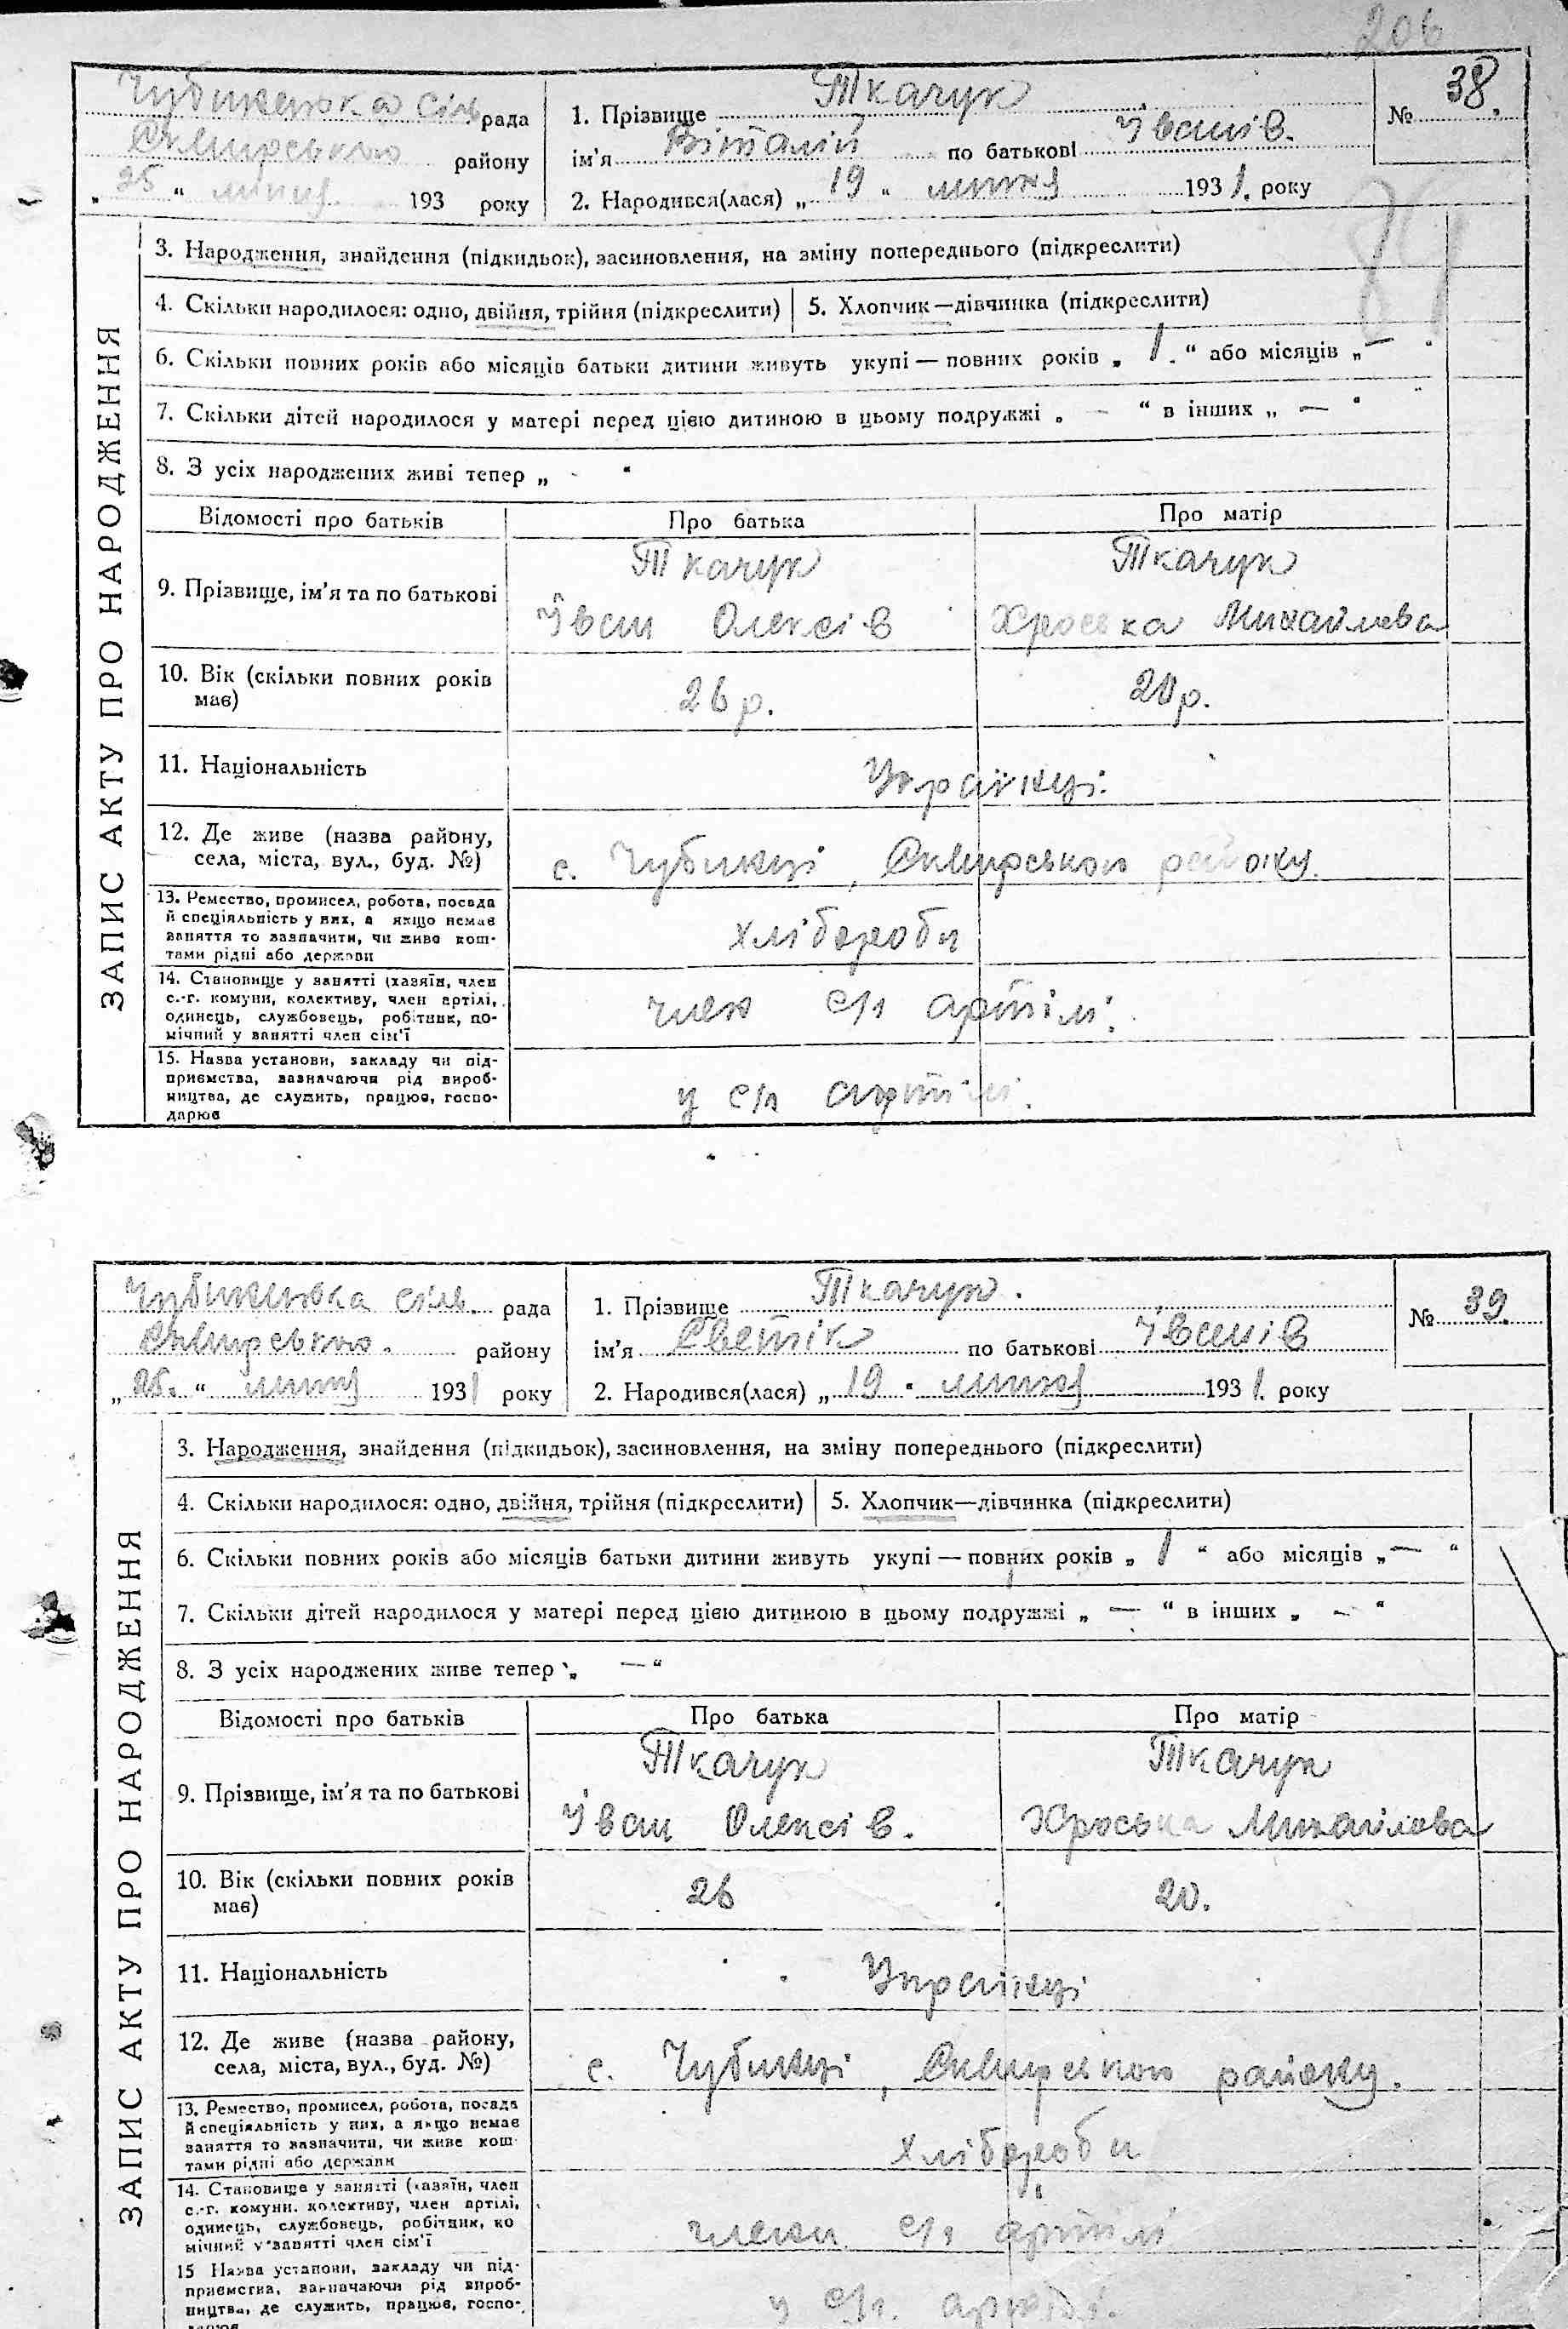 206
Чубинецька сіль рада
Сквирського району
„ 25 “ липня 193 року
1. Прізвище Ткачук
ім'я Віталій по батькові Іванів.
2. Народився(лася) „ 19 „ липня 1931. року
№ 38.
ЗАПИС АКТУ ПРО НАРОДЖЕННЯ
3. Народження, знайдення (підкидьок), засиновлення, на зміну попереднього (підкреслити)
4. Скільки народилося: одно, двійня, трійня (підкреслити)
5. Хлопчик—дівчинка (підкреслити)
6. Скільки повних років або місяців батьки дитини живуть укупі — повних років „ 1. “ або місяців „ —
7. Скільки дітей народилося у матері перед цією дитиною в цьому подружжі „ — “ в інших „ — “
8. З усіх народжених живі тепер „ - “
Відомості про батьків
Про батька
Про матір
9. Прізвище, ім'я та по батькові
Ткачук
Іван Олексів
Ткачук
Хроська Михайлова
10. Вік (скільки повних років
має)
26 р.
20 р.
11. Національність
Українці.
12. Де живе (назва району,
села, міста, вул., буд. №)
с. Чубинці, Сквирського району.
13. Ремество, промисел, робота, посада
й спеціяльність у них, а якщо немає
заняття то зазначити, чи живе кош-
тами рідні або держави
хлібороби
14. Становище у занятті (хазяїн, член
с.-г. комуни, колективу, член артілі,
одинець, службовець, робітник, по-
мічний у занятті член сім'ї
член с/г артілі.
15. Назва установи, закладу чи під-
приємства, зазначаючи рід вироб-
ництва, де служить, працює, госпо-
дарює
у с/г артілі.
Чубинецька сіль. рада
Сквирського. району
„ 25. “ липня 1931 року
1. Прізвище Ткачук.
ім'я Светік по батькові Іванів
2. Народився(лася) „ 19 “ липня 1931. року
№ 39.
ЗАПИС АКТУ ПРО НАРОДЖЕННЯ
3. Народження, знайдення (підкидьок), засиновлення, на зміну попереднього (підкреслити)
4. Скільки народилося: одно, двійня, трійня (підкреслити)
5. Хлопчик—дівчинка (підкреслити)
6. Скільки повних років або місяців батьки дитини живуть укупі — повних років „ 1 “ або місяців „ — “
7. Скільки дітей народилося у матері перед цією дитиною в цьому подружжі „ — “ в інших „ — “
8. З усіх народжених живе тепер „ — “
Відомості про батьків
Про батька
Про матір
9. Прізвище, ім'я та по батькові
Ткачук
Іван Олексів.
Ткачук
Хроська Михайлова
10. Вік (скільки повних років
має)
26
20.
11. Національність
Українці
12. Де живе (назва району,
села, міста, вул., буд. №)
с. Чубинці, Сквирського району.
13. Ремество, промисел, робота, посада
й спеціяльність у них, а якщо немає
заняття то зазначити, чи живе кош-
тами рідні або держави
хлібороби
14. Становище у занятті (хазяїн, член
с.-г. комуни, колективу, член артілі,
одинець, службовець, робітник, по
мічний у занятті член сім'ї
члени с/г артілі
15 Назва установи, закладу чи під-
приємства, зазначаючи рід вироб-
ництва, де служить, працює, госпо-
дарює
у с/г. артілі.